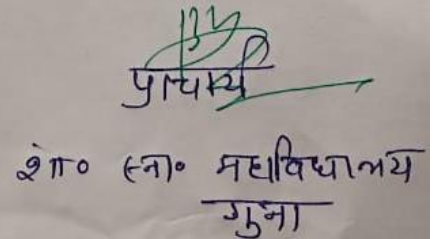 प्राचार्य
शा० स्ना० महाविद्यालय
गुना